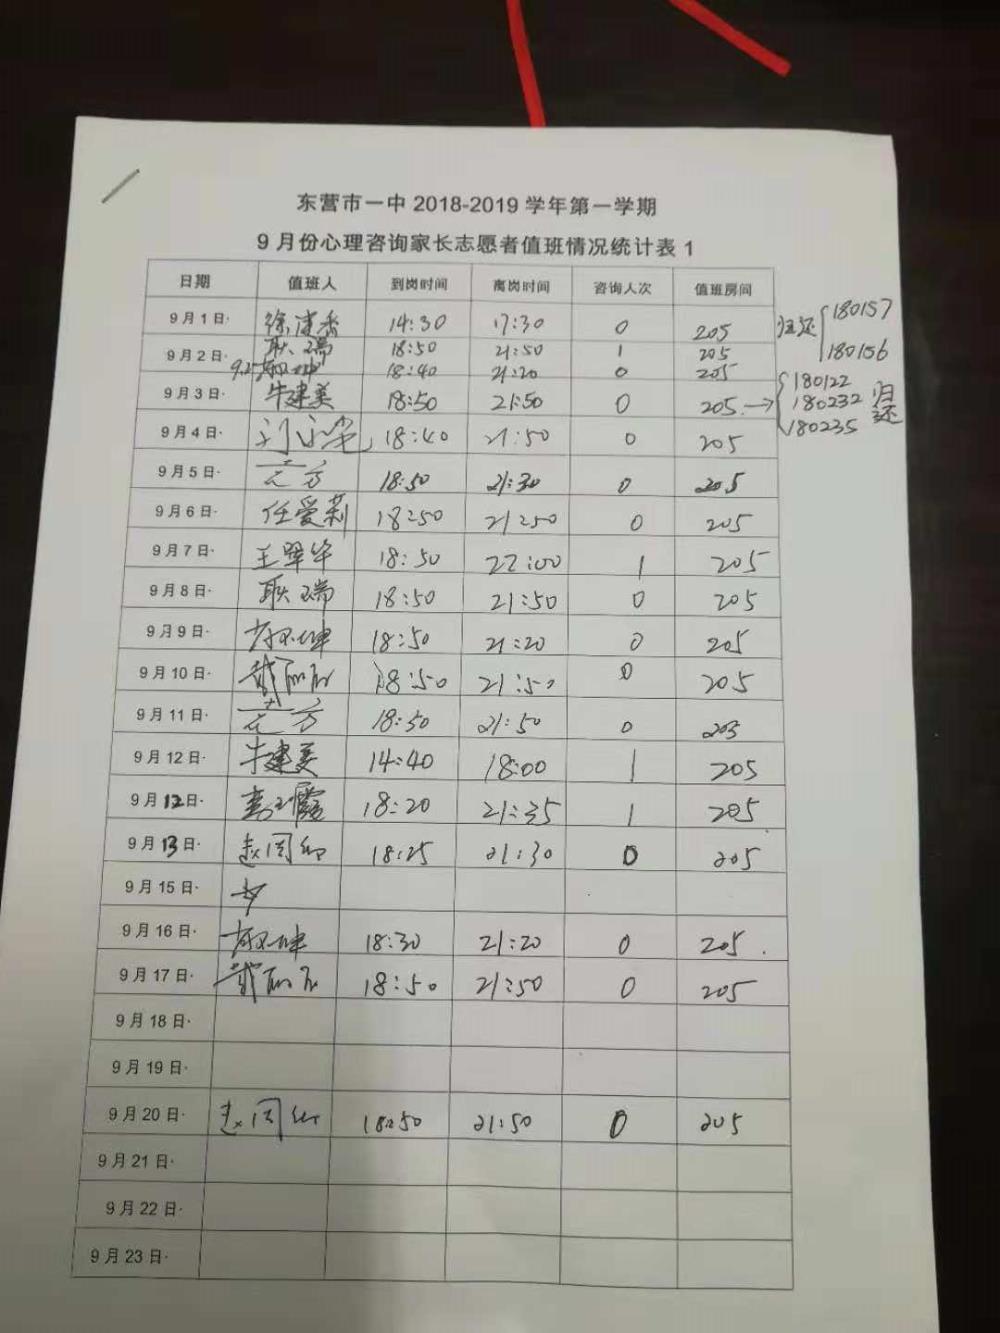 东营市一中 2018-2019 学年第一学期
9 月份心理咨询家长志愿者值班情况统计表 1
日期 值班人 到岗时间 离岗时间 咨询人次 值班房间
9 月 1 日 14:30 17:30 0 205 归还 180157
180156
9 月 2 日 耿瑞 18:50 21:50 1 205
18:40 21:20 0 205
9 月 3 日 牛建美 18:50 21:50 0 205 → 180122
180232 归还
180235
9 月 4 日 18:40 21:50 0 205
9 月 5 日 18:50 21:30 0 205
9 月 6 日 任爱莉 18:50 21:50 0 205
9 月 7 日 王翠华 18:50 22:00 1 205
9 月 8 日 耿瑞 18:50 21:50 0 205
9 月 9 日 18:50 21:20 0 205
9 月 10 日 18:50 21:50 0 205
9 月 11 日 18:50 21:50 0 205
9 月 12 日 牛建美 14:40 18:00 1 205
9 月 12 日 18:20 21:35 1 205
9 月 13 日 18:25 21:30 0 205
9 月 15 日
9 月 16 日 18:30 21:20 0 205
9 月 17 日 18:50 21:50 0 205
9 月 18 日
9 月 19 日
9 月 20 日 18:50 21:50 0 205
9 月 21 日
9 月 22 日
9 月 23 日